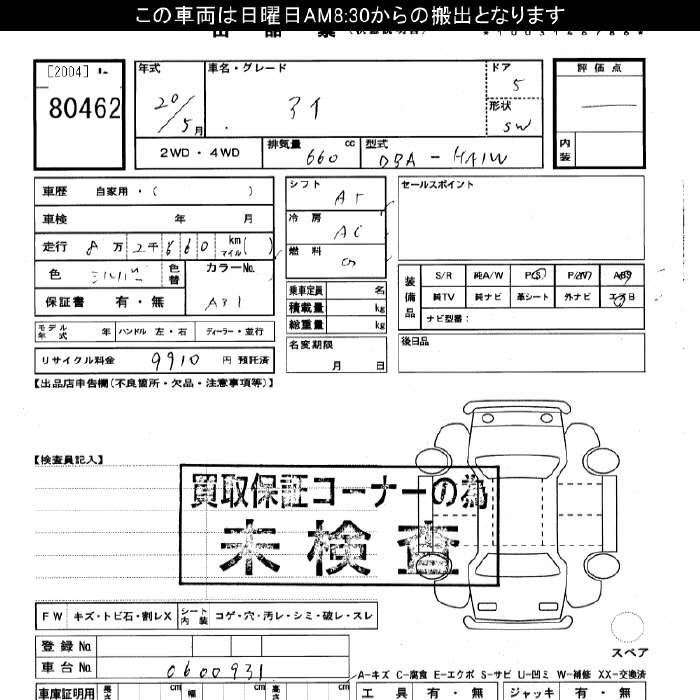 この車両は日曜日AM8:30からの搬出となります
出 品 票
[2004]
80462
年式
20/5月
車名・グレード
アイ
ドア
5
形状
SW
評 価 点
内装
2WD ・ 4WD
排気量
660 cc
型式
DBA - HA1W
車歴 自家用・( )
車検 年 月
走行 8万2千660 km マイル( )
色
色替
カラーNo.
A31
保証書 有・無
シフト
AT
冷房
AC
燃料
乗車定員 名
積載量 kg
総重量 kg
セールスポイント
装備品
S/R 純A/W P/S P/W ABS
純TV 純ナビ 革シート 外ナビ エアB
ナビ型番:
モデル年式 年 ハンドル 左・右 ディーラー・並行
リサイクル料金 9910 円 預託済
名変期限
月 日
後日品
【出品店申告欄(不良箇所・欠品・注意事項等)】
【検査員記入】
買取保証コーナーの為
未検査
FW キズ・トビ石・割レX シート内装 コゲ・穴・汚レ・シミ・破レ・スレ
登録No.
車台No.
0600931
スペア
A-キズ C-腐食 E-エクボ S-サビ U-凹ミ W-補修 XX-交換済
車庫証明用 長さ cm 幅 cm 高さ cm
工具 有・無 ジャッキ 有・無